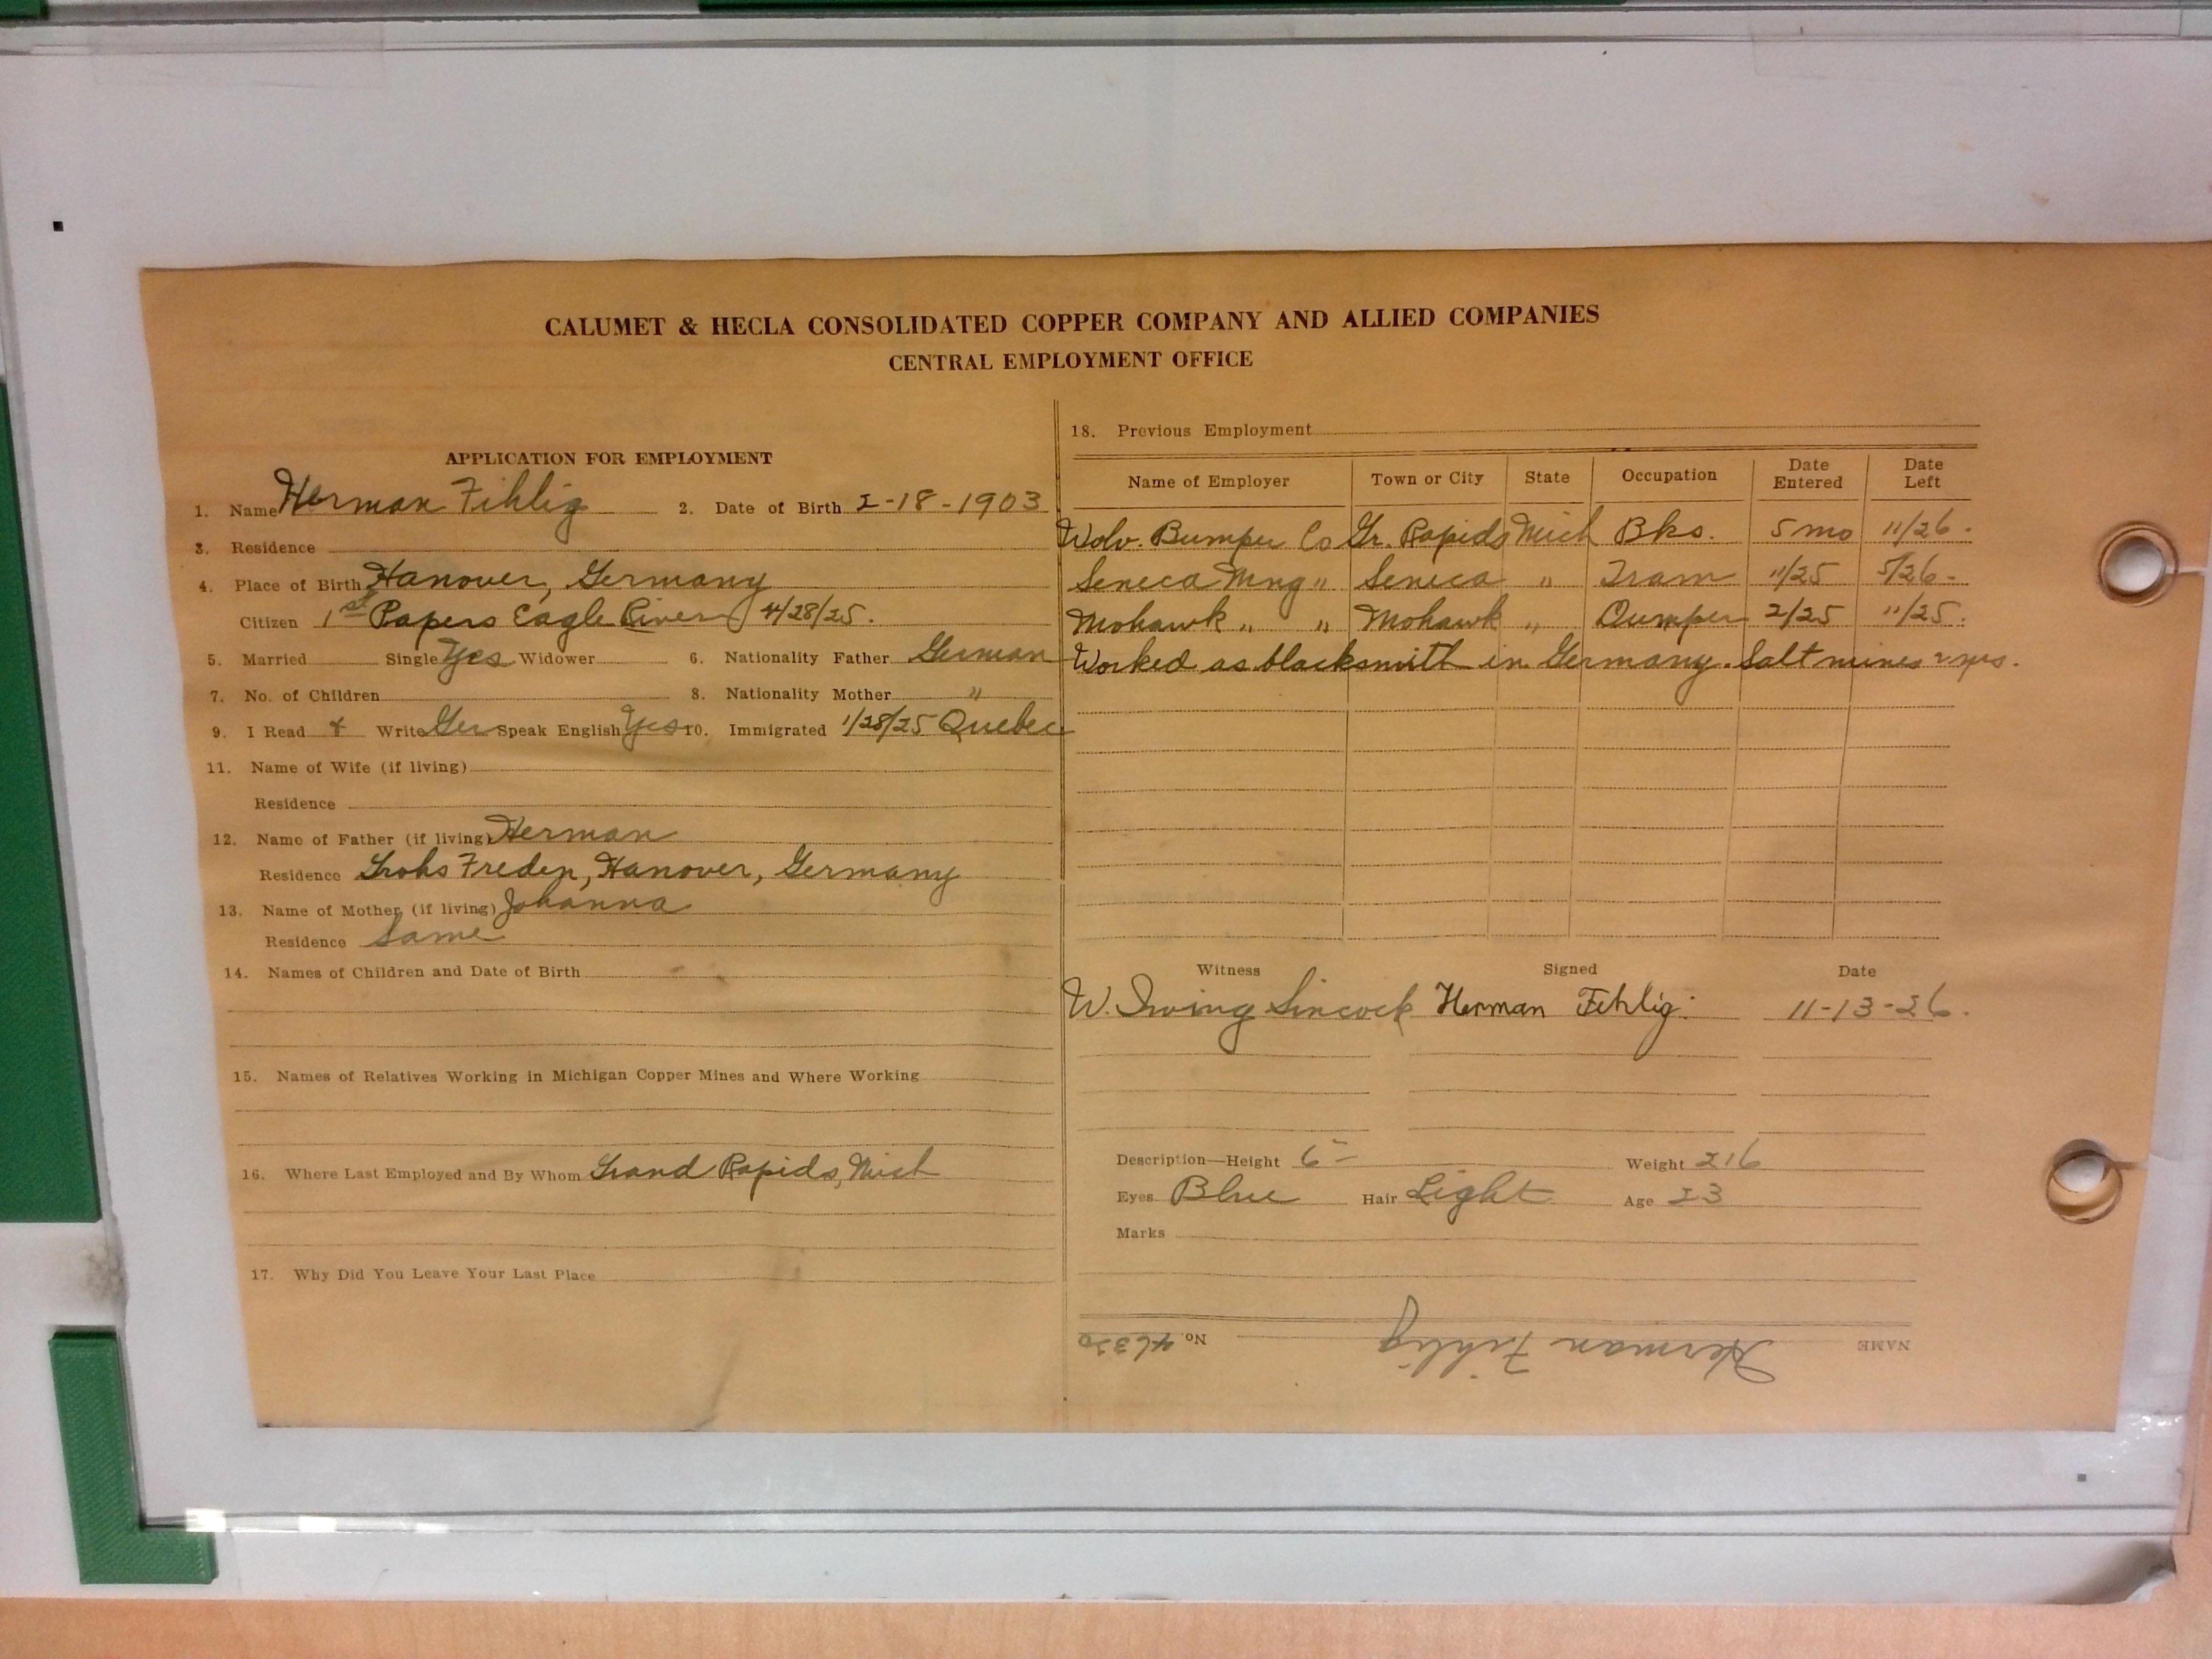 CALUMET & HECLA CONSOLIDATED COPPER COMPANY AND ALLIED COMPANIES
CENTRAL EMPLOYMENT OFFICE
APPLICATION FOR EMPLOYMENT
1. Name Herman Fihlig 2. Date of Birth 2-18-1903
3. Residence
4. Place of Birth Hanover, Germany
Citizen 1st Papers Eagle River 4/28/25.
5. Married Single Yes Widower 6. Nationality Father German
7. No. of Children 8. Nationality Mother "
9. I Read + Write Ger Speak English Yes 10. Immigrated 1/28/25 Quebec
11. Name of Wife (if living)
Residence
12. Name of Father (if living) Herman
Residence Grohs Freden, Hanover, Germany
13. Name of Mother (if living) Johanna
Residence Same
14. Names of Children and Date of Birth
15. Names of Relatives Working in Michigan Copper Mines and Where Working
16. Where Last Employed and By Whom Grand Rapids, Mich
17. Why Did You Leave Your Last Place
18. Previous Employment
Name of Employer Town or City State Occupation Date Entered Date Left
Wolv. Bumper Co Gr. Rapids Mich Bks. 5 mo 11/26.
Seneca Mng " Seneca " Tram 11/25 5/26.
Mohawk " " Mohawk " Dumper 2/25 11/25.
Worked as blacksmith in Germany. Salt mines 2 yrs.
Witness Signed Date
W. Irving Sincock Herman Fihlig. 11-13-26.
Description—Height 6- Weight 216
Eyes Blue Hair Light Age 23
Marks
NAME Herman Fihlig No. 46320